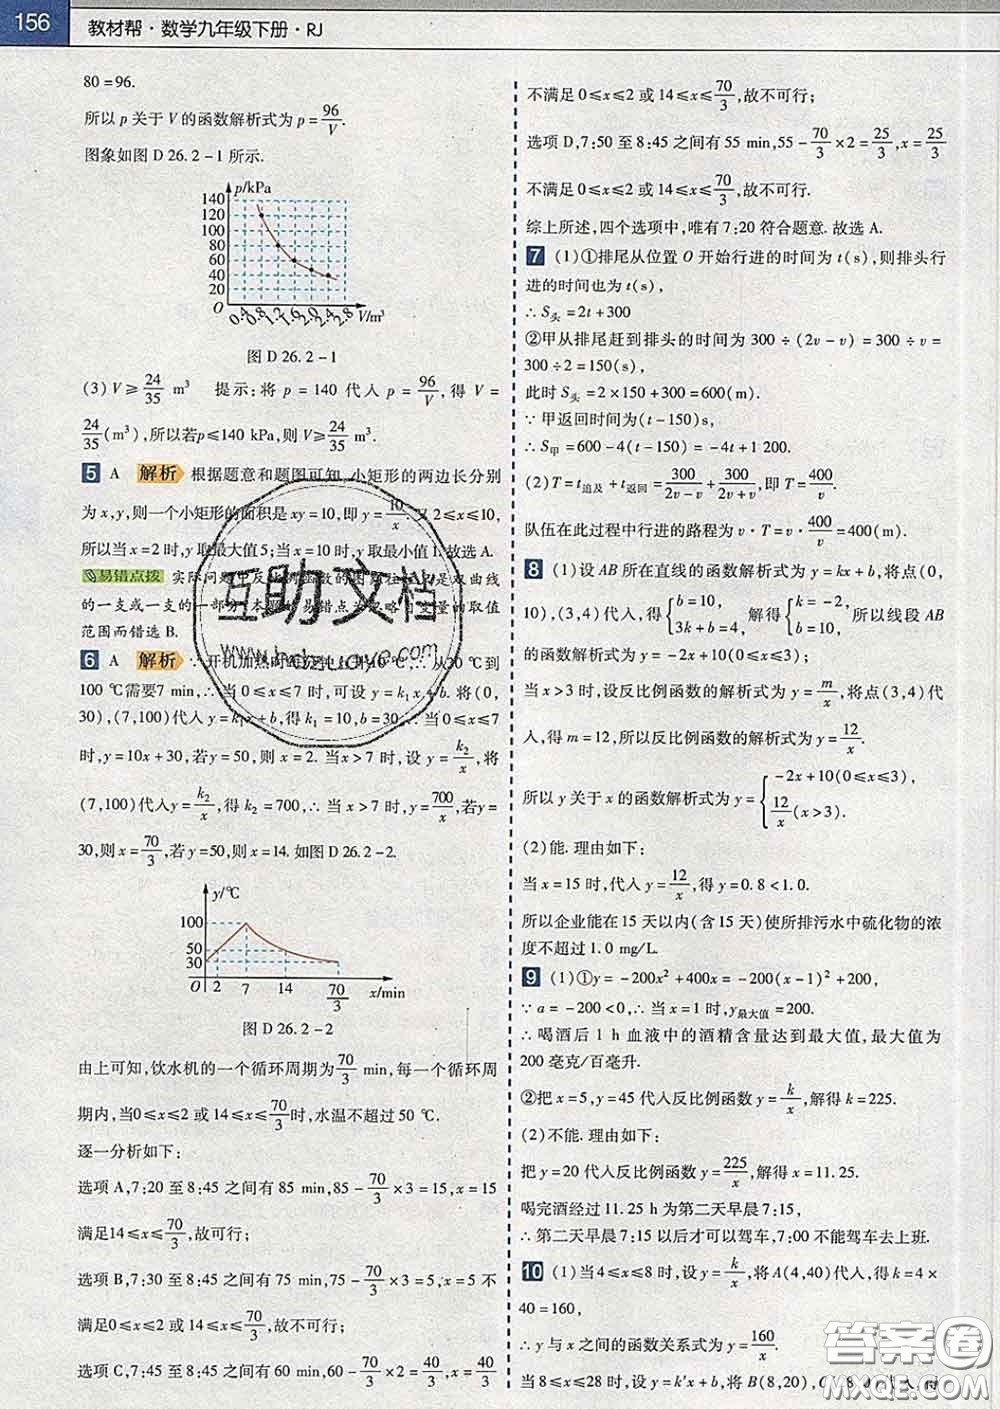 156
教材帮·数学九年级下册·RJ
80=96.
所以 p 关于 V 的函数解析式为 p=96/V.
图象如图 D 26.2-1 所示.
p/kPa
140
120
100
80
60
40
20
O
0.4 0.8 1.2 1.6 2.0 2.4 2.8 V/m³
图 D 26.2-1
(3) V≥24/35 m³ 提示:将 p=140 代入 p=96/V,得 V=
24/35(m³),所以若p≤140 kPa,则 V≥24/35 m³.
5 A 解析 根据题意和题图可知,小矩形的两边长分别
为 x,y,则一个小矩形的面积是 xy=10,即 y=10/x.又 2≤x≤10,
所以当 x=2 时,y 取最大值5;当 x=10 时,y 取最小值1.故选 A.
易错点拨 实际问题中反比例函数的图象往往是双曲线
的一支或一支的一部分.本题易错点为忽略自变量的取值
范围而错选 B.
6 A 解析 ∵开机加热时每分钟上升10 ℃,∴从30 ℃到
100 ℃需要7 min,∴当 0≤x≤7 时,可设 y=k₁x+b.将(0,
30),(7,100)代入 y=k₁x+b,得 k₁=10,b=30,∴当0≤x≤7
时,y=10x+30,若y=50,则 x=2. 当x>7 时,设 y=k₂/x,将
(7,100)代入y=k₂/x,得 k₂=700,∴当 x>7 时,y=700/x,若y=
30,则 x=70/3,若 y=50,则 x=14. 如图 D 26.2-2.
y/℃
100
50
30
O 2 7 14 70/3 x/min
图 D 26.2-2
由上可知,饮水机的一个循环周期为70/3 min,每一个循环周
期内,当0≤x≤2 或14≤x≤70/3时,水温不超过 50 ℃.
逐一分析如下:
选项 A,7:20 至 8:45 之间有 85 min,85-70/3×3=15,x=15
满足14≤x≤70/3,故可行;
选项 B,7:30 至 8:45 之间有 75 min,75-70/3×3=5,x=5 不
满足0≤x≤2 或 14≤x≤70/3,故不可行;
选项 C,7:45 至 8:45 之间有 60 min,60-70/3×2=40/3,x=40/3
不满足 0≤x≤2 或 14≤x≤70/3,故不可行;
选项 D,7:50 至 8:45 之间有 55 min,55-70/3×2=25/3,x=25/3
不满足 0≤x≤2 或 14≤x≤70/3,故不可行.
综上所述,四个选项中,唯有 7:20 符合题意.故选 A.
7 (1)①排尾从位置 O 开始行进的时间为 t(s),则排头行
进的时间也为 t(s),
∴S头=2t+300
②甲从排尾赶到排头的时间为 300÷(2v-v)=300÷v=
300÷2=150(s),
此时 S头=2×150+300=600(m).
∵甲返回时间为(t-150)s,
∴S甲=600-4(t-150)=-4t+1 200.
(2)T=t追及+t返回=300/(2v-v)+300/(2v+v),即 T=400/v.
队伍在此过程中行进的路程为 v·T=v·400/v=400(m).
8 (1)设 AB 所在直线的函数解析式为 y=kx+b,将点(0,
10),(3,4)代入,得{b=10, 3k+b=4, 解得{k=-2, b=10, 所以线段 AB
的函数解析式为 y=-2x+10(0≤x≤3);
当 x>3 时,设反比例函数的解析式为 y=m/x,将点(3,4)代
入,得 m=12,所以反比例函数的解析式为 y=12/x.
所以 y 关于 x 的函数解析式为 y={-2x+10(0≤x≤3), 12/x(x>3).
(2)能.理由如下:
当 x=15 时,代入 y=12/x,得 y=0.8<1.0.
所以企业能在 15 天以内(含 15 天)使所排污水中硫化物的浓
度不超过 1.0 mg/L.
9 (1)①y=-200x²+400x=-200(x-1)²+200,
∵a=-200<0,∴当 x=1 时,y最大值=200.
∴喝酒后 1 h 血液中的酒精含量达到最大值,最大值为
200 毫克/百毫升.
②把 x=5,y=45 代入反比例函数 y=k/x,解得 k=225.
(2)不能.理由如下:
把 y=20 代入反比例函数 y=225/x,解得 x=11.25.
喝完酒经过 11.25 h 为第二天早晨 7:15,
∴第二天早晨 7:15 以后才可以驾车,7:00 不能驾车去上班.
10 (1)当4≤x≤8 时,设 y=k/x,将 A(4,40)代入,得 k=4×
40=160,
∴y 与 x 之间的函数关系式为 y=160/x.
当 8≤x≤28 时,设 y=k'x+b,将 B(8,20),C(28,0)代入,得
互助文档
答案圈
MXQE.COM